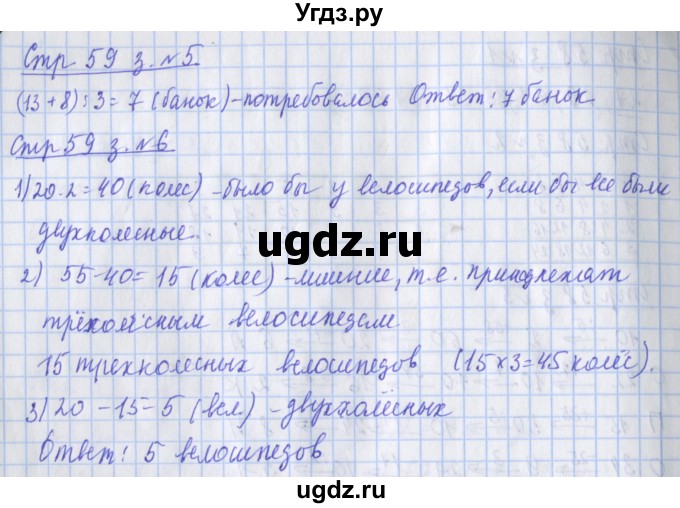 Угдз.ру
Стр 59 з. №5.
(13+8):3=7 (банок)-потребовалось Ответ: 7 банок
Стр 59 з. №6
1) 20·2=40 (колес) -было бы у велосипедов, если бы все были
двухколесные.
ugdz.ru
2) 55-40=15 (колес) -лишние, т.е. принадлежат
трёхколёсным велосипедам
15 трехколесных велосипедов (15×3=45 колёс).
3) 20-15=5 (вел.) -двухколёсных
Ответ: 5 велосипедов
ugdz.ru